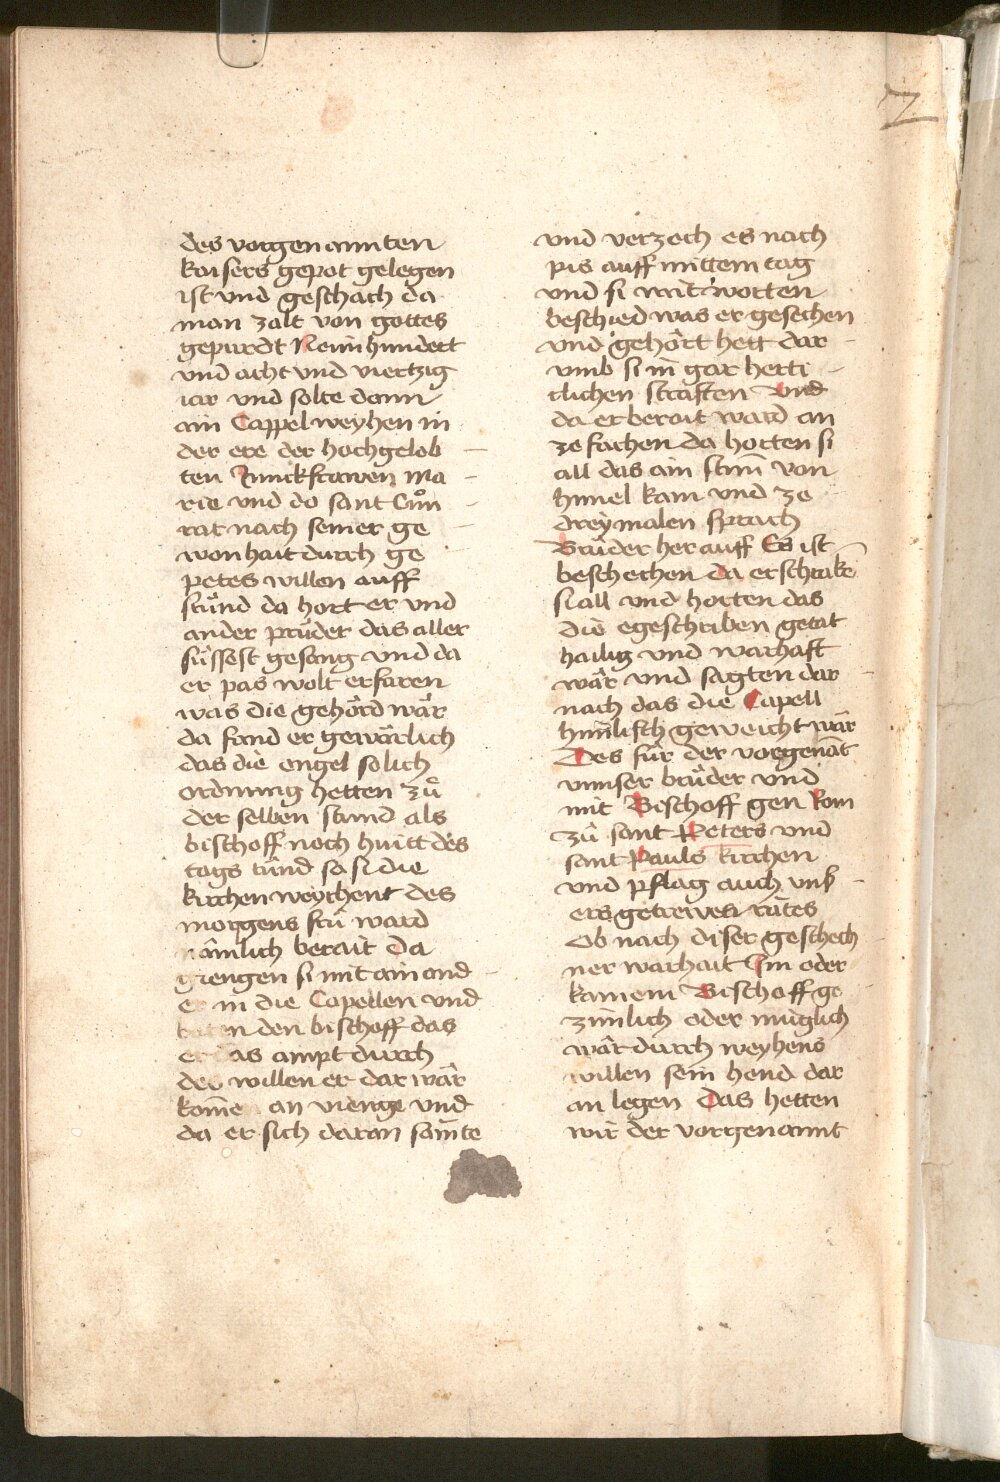 2
des vorgenannten
kaisers gepot gelegen
ist vnd geschach da
man zalt von gottes
gepurdt Neuin hundert
vnd acht vnd viertzig
iar vnd solte dann
ain Cappel weyhen in
der ere der hochgelob
ten Junckfrawen ma
rie vnd do sant Cůn
rat nach seiner ge
wonhait durch ge
petes willen auff
stůnd da hort er vnd
ander prüder das aller
süssest gesang vnd da
er pas wolt erfaren
was die gehörd wär
da fand er gewärlich
das die engel solich
ordnung hetten zů
der selben stund als
bischoff noch huitt des
tags tünd so si die
kirchen weychent des
morgens frü ward
nämlich berait Da
giengen si mit ain and
er in die Capellen vnd
baten den bischoff das
er das ampt durch
des willen er dar wär
kome an vienge vnd
da er sich daran samte
vnd verzoch es nach
pis auff mittem tag
vnd si mit worten
beschied was er gesechen
vnd gehört hett dar
vmb si in gar herti
clichen straften Vnd
da er berait ward an
ze fachen da horten si
all das ain stim von
himel kam vnd ze
dreymalen sprach
Brüder her auff Es ist
beschechen da erschrake
si all vnd horten das
die egeschriben getat
hailig vnd warhaft
wär vnd sagten dar
nach das die Capell
himlisch geweicht wär
Des für der vorgenāt
vnnser brüder vnd
mit Bischoff gen Rom
zü sant Peters vnd
sant Pauls kirchen
vnd pflag auch vns
ers getrewen rates
Ob nach diser geschech
ner warhait Im oder
kainem Bischoff ge
zimlich oder müglich
wär durch weyhens
willen sein hend dar
an legen Das hetten
wir der vorgenannt